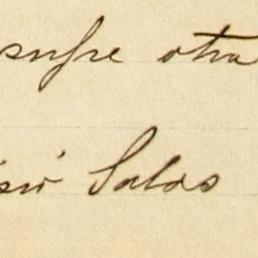 sufre otra
Salas